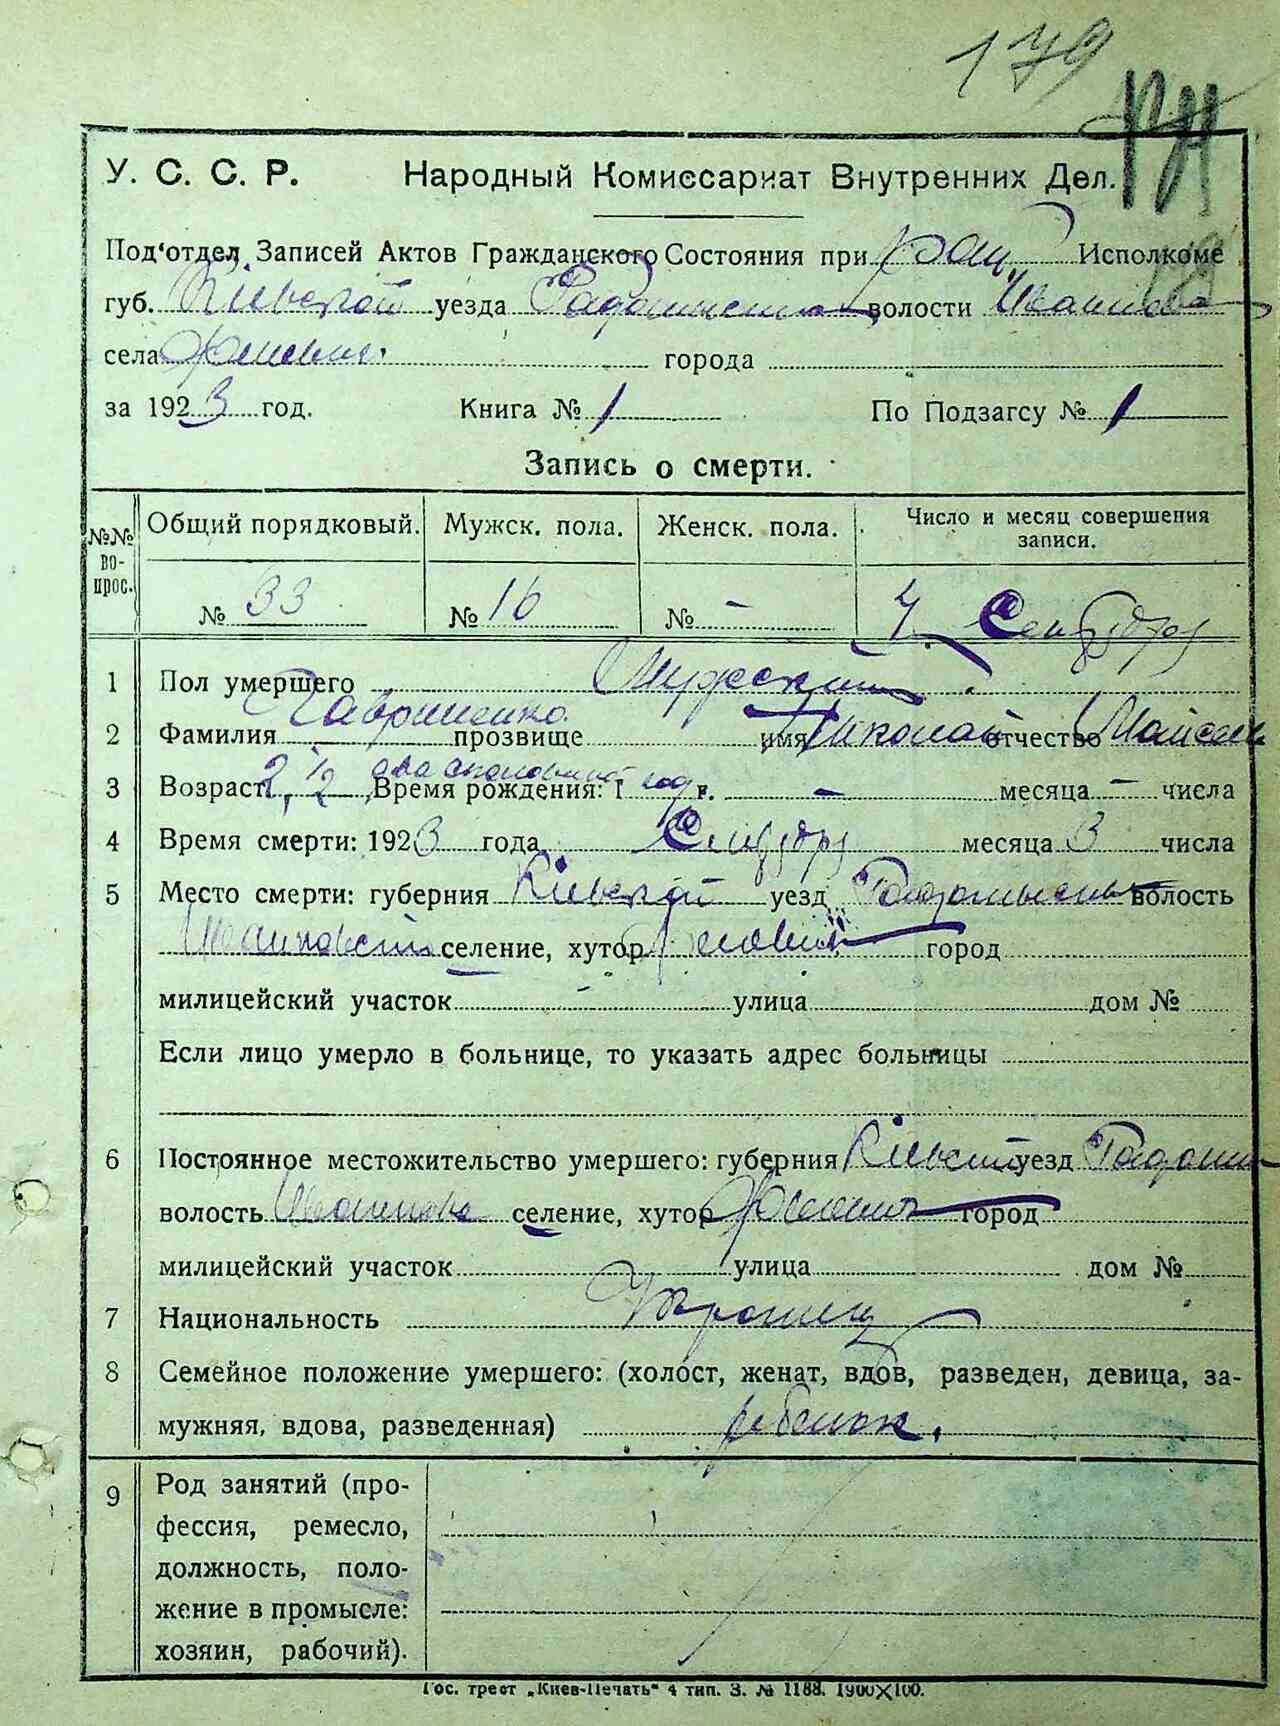 179
У. С. С. Р. Народный Комиссариат Внутренних Дел.
Под'отдел Записей Актов Гражданского Состояния при Исполкоме
губ. Кіевской уезда Радомысльск волости Иванков
села города
за 1923 год. Книга № 1 По Подзагсу № 1
Запись о смерти.
№№ вопрос. Общий порядковый. Мужск. пола. Женск. пола. Число и месяц совершения записи.
№ 33 № 16 № - 4 Сентября
1 Пол умершего Мужеский
2 Фамилия Гавриленко прозвище имя Николай отчество Моисеев
3 Возраст 2 1/2 два споловиной год Время рождения: 1 г. - месяца - числа
4 Время смерти: 1923 года Сентября месяца 3 числа
5 Место смерти: губерния Кіевской уезд Радомысльск волость
Иванковской селение, хутор город
милицейский участок - улица дом №
Если лицо умерло в больнице, то указать адрес больницы
6 Постоянное местожительство умершего: губерния Кіевской уезд Радомысл
волость Иванков селение, хутор город
милицейский участок улица дом №
7 Национальность Украинец
8 Семейное положение умершего: (холост, женат, вдов, разведен, девица, за-
мужняя, вдова, разведенная) ребенок.
9 Род занятий (про-
фессия, ремесло,
должность, поло-
жение в промысле:
хозяин, рабочий).
Гос. трест „Киев-Печать" 4 тип. З. № 1188. 1900×100.